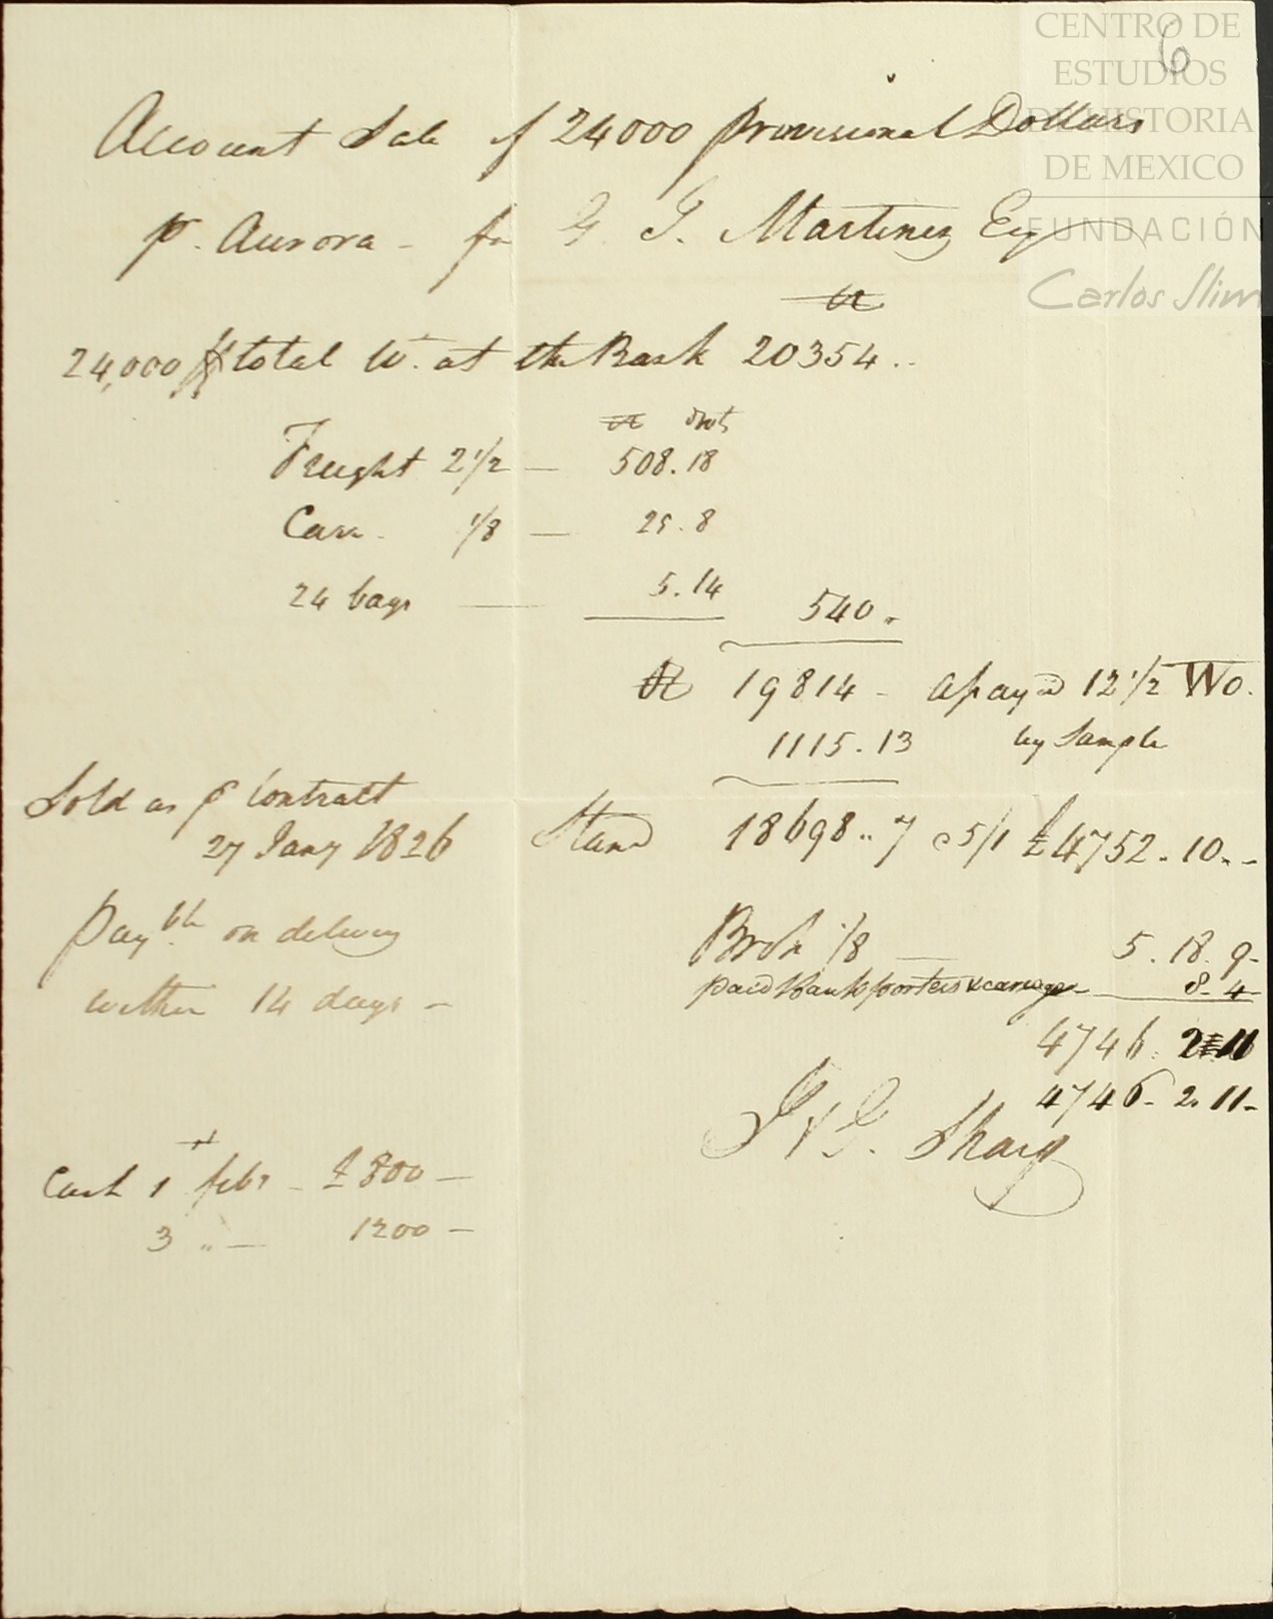 6
CENTRO DE
ESTUDIOS
DE HISTORIA
DE MEXICO
FUNDACIÓN
Carlos Slim
Account Sale of 24000 Provisional Dollars
p. Aurora - for G. G. Martinez Esq
oz
24,000 $ total Wt. at the Bank 20354..
oz dwts
Freight 2 1/2 — 508.18
Carr. 1/8 — 25.8
24 bags — 5.14 540.
oz 19814 - assay'd 12 1/2 Wo.
1115.13 by Sample
Sold as p Contract
27 Jany 1826
Stand 18698..7 @ 5/1 £4752.10.-
Payble on delivery
within 14 days -
Brok 1/8 — 5.18.9-
paid Bank porters & carriage - 8-4-
4746.2.11
4746-2.11-
J & G. Sharp
Cash 1st feby - £800 -
3 " — 1200 -